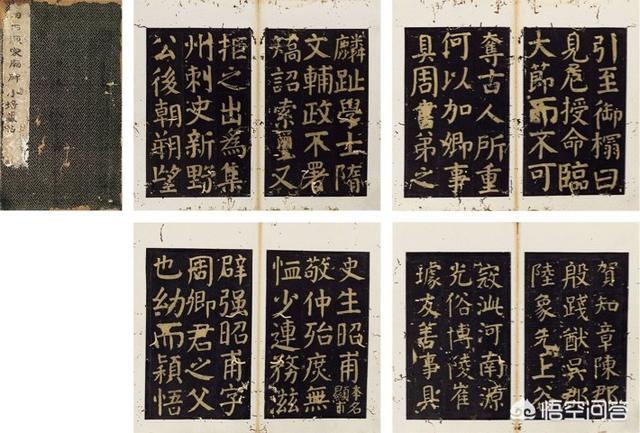 引至御榻曰
見危授命臨
大節而不可
奪古人所重
何以加卿事
具周書弟之
麟趾學士隋
文輔政不署
矯詔索璽又
拒之出為集
州刺史新野
公後朝朔望
賀知章陳郡
殷踐猷吳郡
陸象先上谷
寇泚河南源
光俗博陵崔
璩友善事具
史生昭甫本名顯甫
敬仲殆庶無
恤少連務滋
辟强昭甫字
周卿君之父
也幼而穎悟
悟空问答